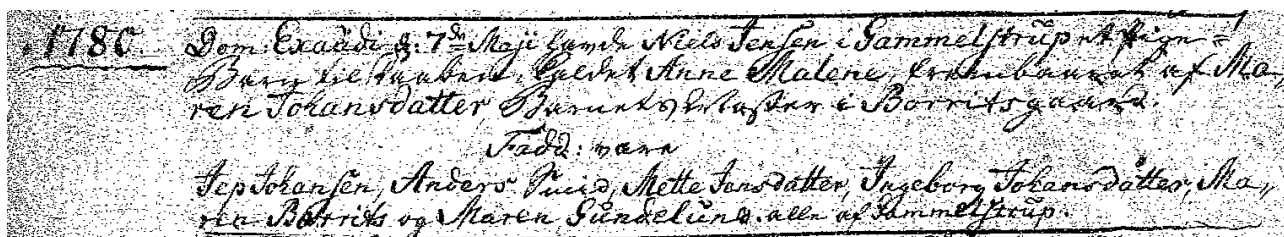 1780. Dom: Exaudi d: 7de Maji havde Niels Jensen i Gammelstrup et Pige=
Barn til Daaben, kaldet Anne Malene, frembaaret af Ma,
ren Johansdatter Barnets Moster i Borritsgaard.
Fadd: vare
Jep Johansen, Anders Smid, Mette Jensdatter, Ingeborg Johansdatter, Ma,,
ren Borrits og Maren Gundelund. alle af Gammelstrup.